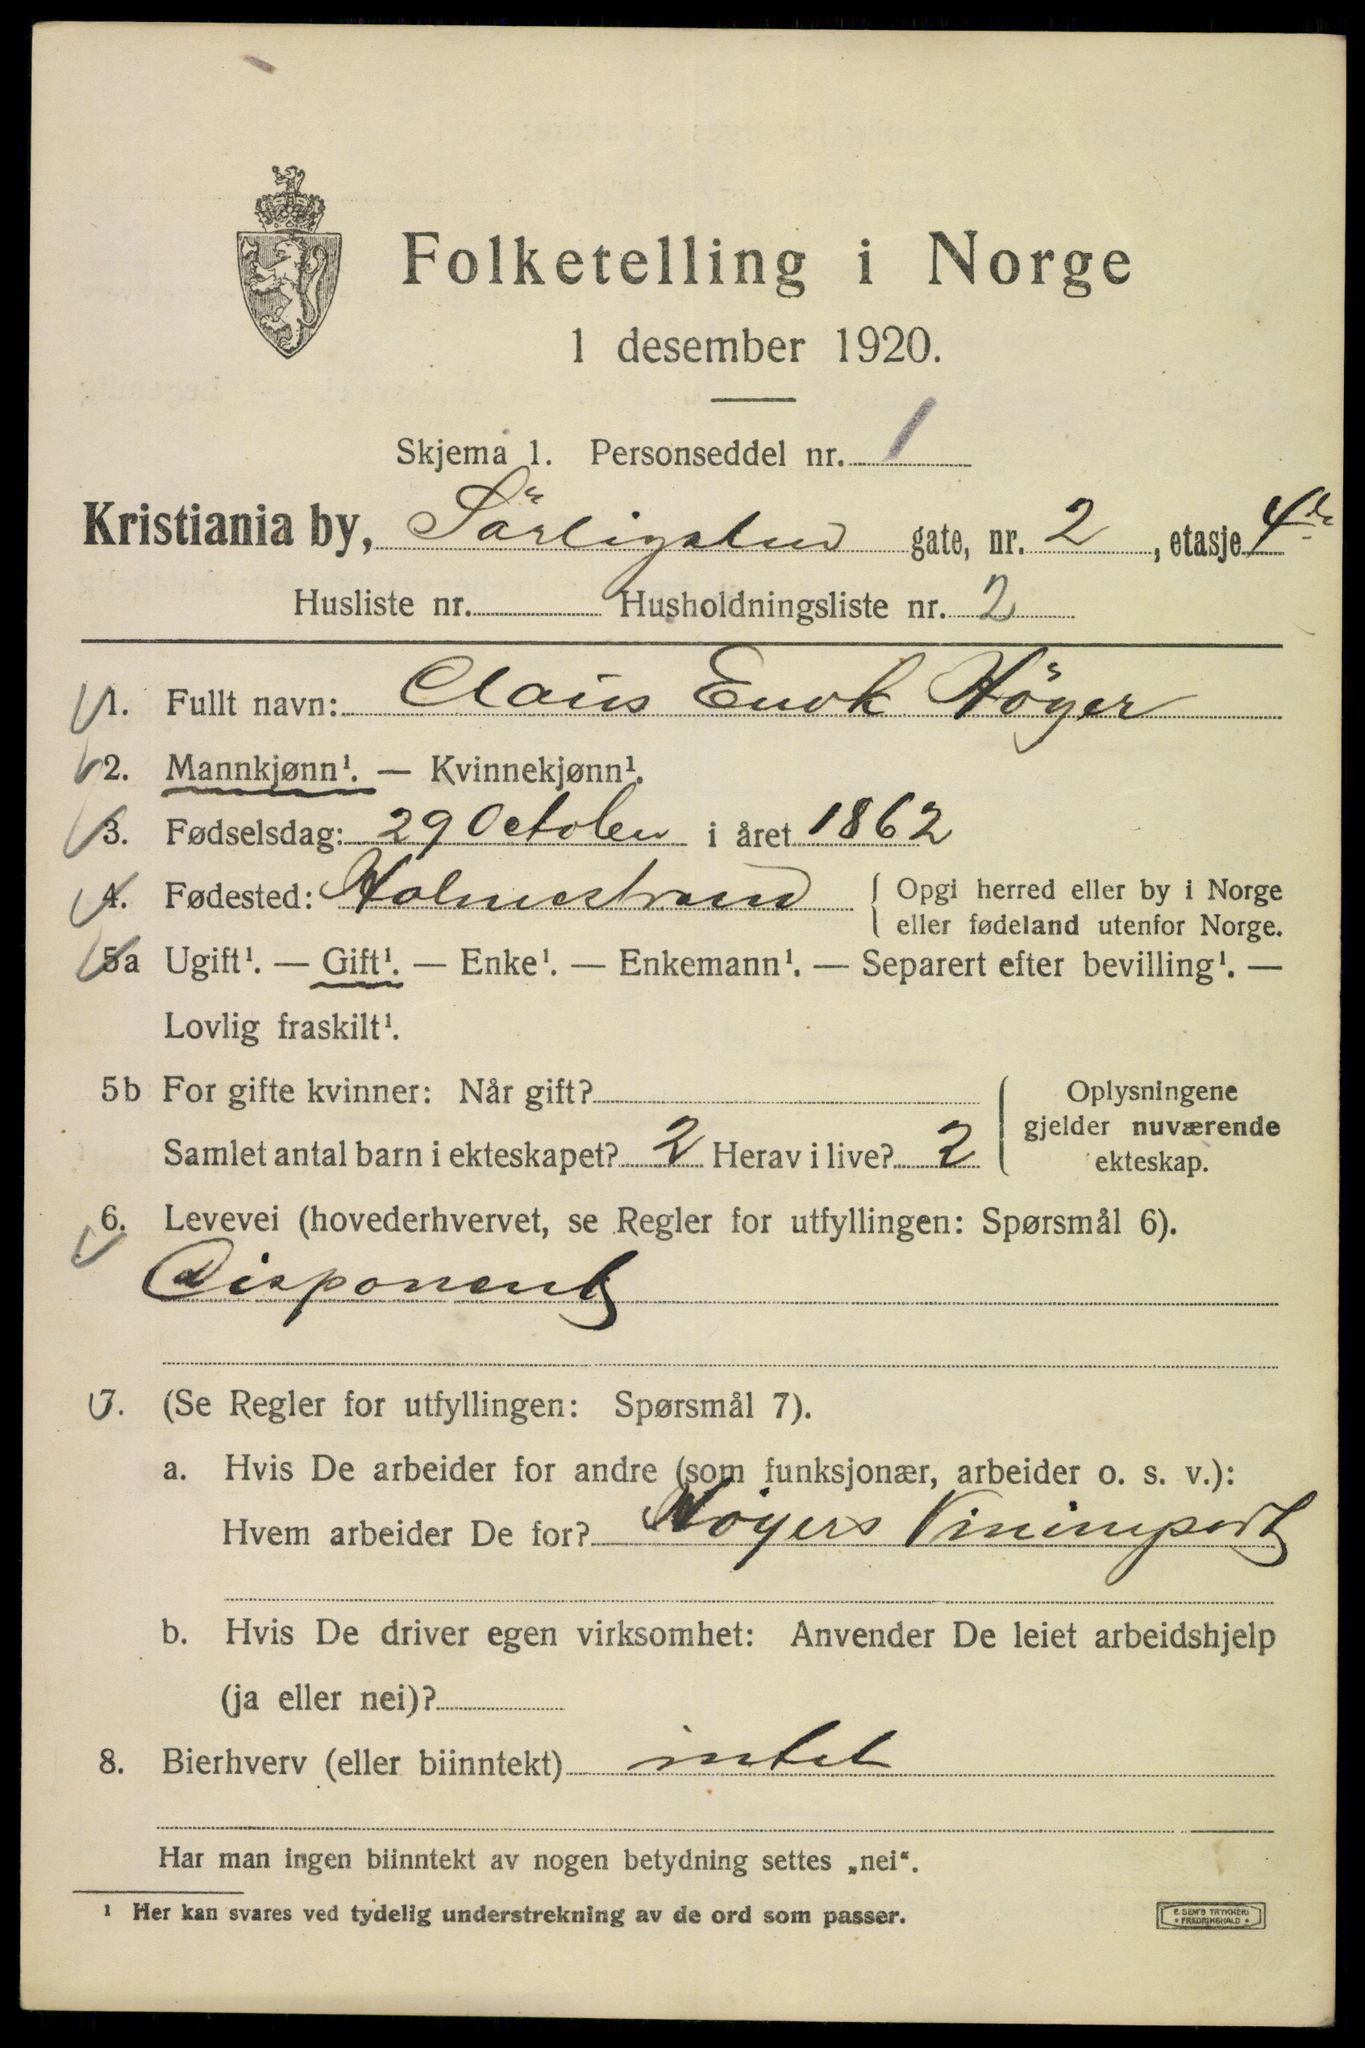 Folketelling i Norge
1 desember 1920.
Skjema 1. Personseddel nr. 1
Kristiania by, gate, nr. 2, etasje 4de
Husliste nr. Husholdningsliste nr. 2
1. Fullt navn: Claus Enok Höyer
2. Mannkjønn¹. — Kvinnekjønn¹.
3. Fødselsdag: 29 October i året 1862
4. Fødested: Holmestrand { Opgi herred eller by i Norge
eller fødeland utenfor Norge.
5a Ugift¹. — Gift¹. — Enke¹. — Enkemann¹. — Separert efter bevilling¹. —
Lovlig fraskilt¹.
5b For gifte kvinner: Når gift?
Samlet antal barn i ekteskapet? 2 Herav i live? 2
Oplysningene
gjelder nuværende
ekteskap.
6. Levevei (hovederhvervet, se Regler for utfyllingen: Spørsmål 6).
Disponent
7. (Se Regler for utfyllingen: Spørsmål 7).
a. Hvis De arbeider for andre (som funksjonær, arbeider o. s. v.):
Hvem arbeider De for? Høyers Vinimport
b. Hvis De driver egen virksomhet: Anvender De leiet arbeidshjelp
(ja eller nei)?
8. Bierhverv (eller biinntekt) intet
Har man ingen biinntekt av nogen betydning settes „nei“.
¹ Her kan svares ved tydelig understrekning av de ord som passer.
E. SEM'S TRYKKERI
• FREDRIKSHALD •